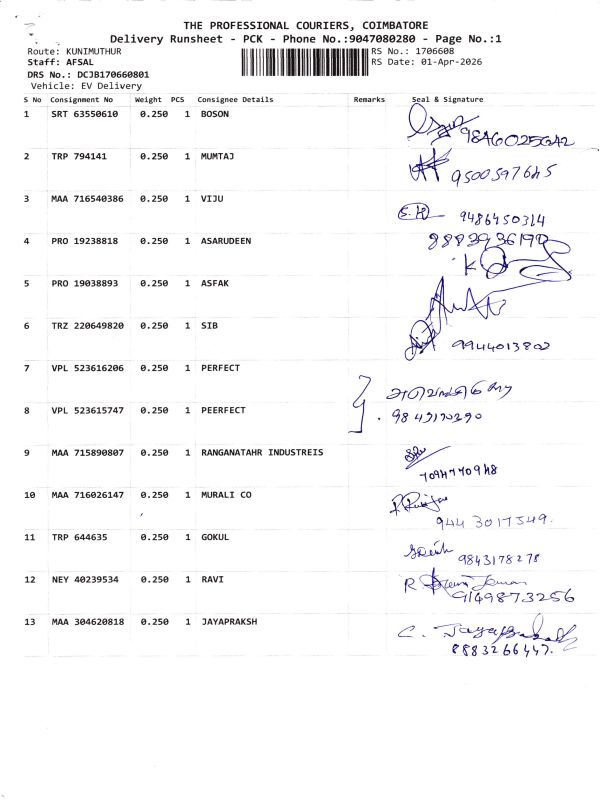 THE PROFESSIONAL COURIERS, COIMBATORE
Delivery Runsheet - PCK - Phone No.:9047080280 - Page No.:1
Route: KUNIMUTHUR RS No.: 1706608
Staff: AFSAL RS Date: 01-Apr-2026
DRS No.: DCJB170660801
Vehicle: EV Delivery
S No Consignment No Weight PCS Consignee Details Remarks Seal & Signature
1 SRT 63550610 0.250 1 BOSON
2 TRP 794141 0.250 1 MUMTAJ 9500597645
3 MAA 716540386 0.250 1 VIJU 9486450314
4 PRO 19238818 0.250 1 ASARUDEEN
5 PRO 19038893 0.250 1 ASFAK
6 TRZ 220649820 0.250 1 SIB 9944013802
7 VPL 523616206 0.250 1 PERFECT
8 VPL 523615747 0.250 1 PEERFECT
9 MAA 715890807 0.250 1 RANGANATAHR INDUSTREIS
10 MAA 716026147 0.250 1 MURALI CO
9443017549.
11 TRP 644635 0.250 1 GOKUL
9843178278
12 NEY 40239534 0.250 1 RAVI
9149873256
13 MAA 304620818 0.250 1 JAYAPRAKSH
8883266447.